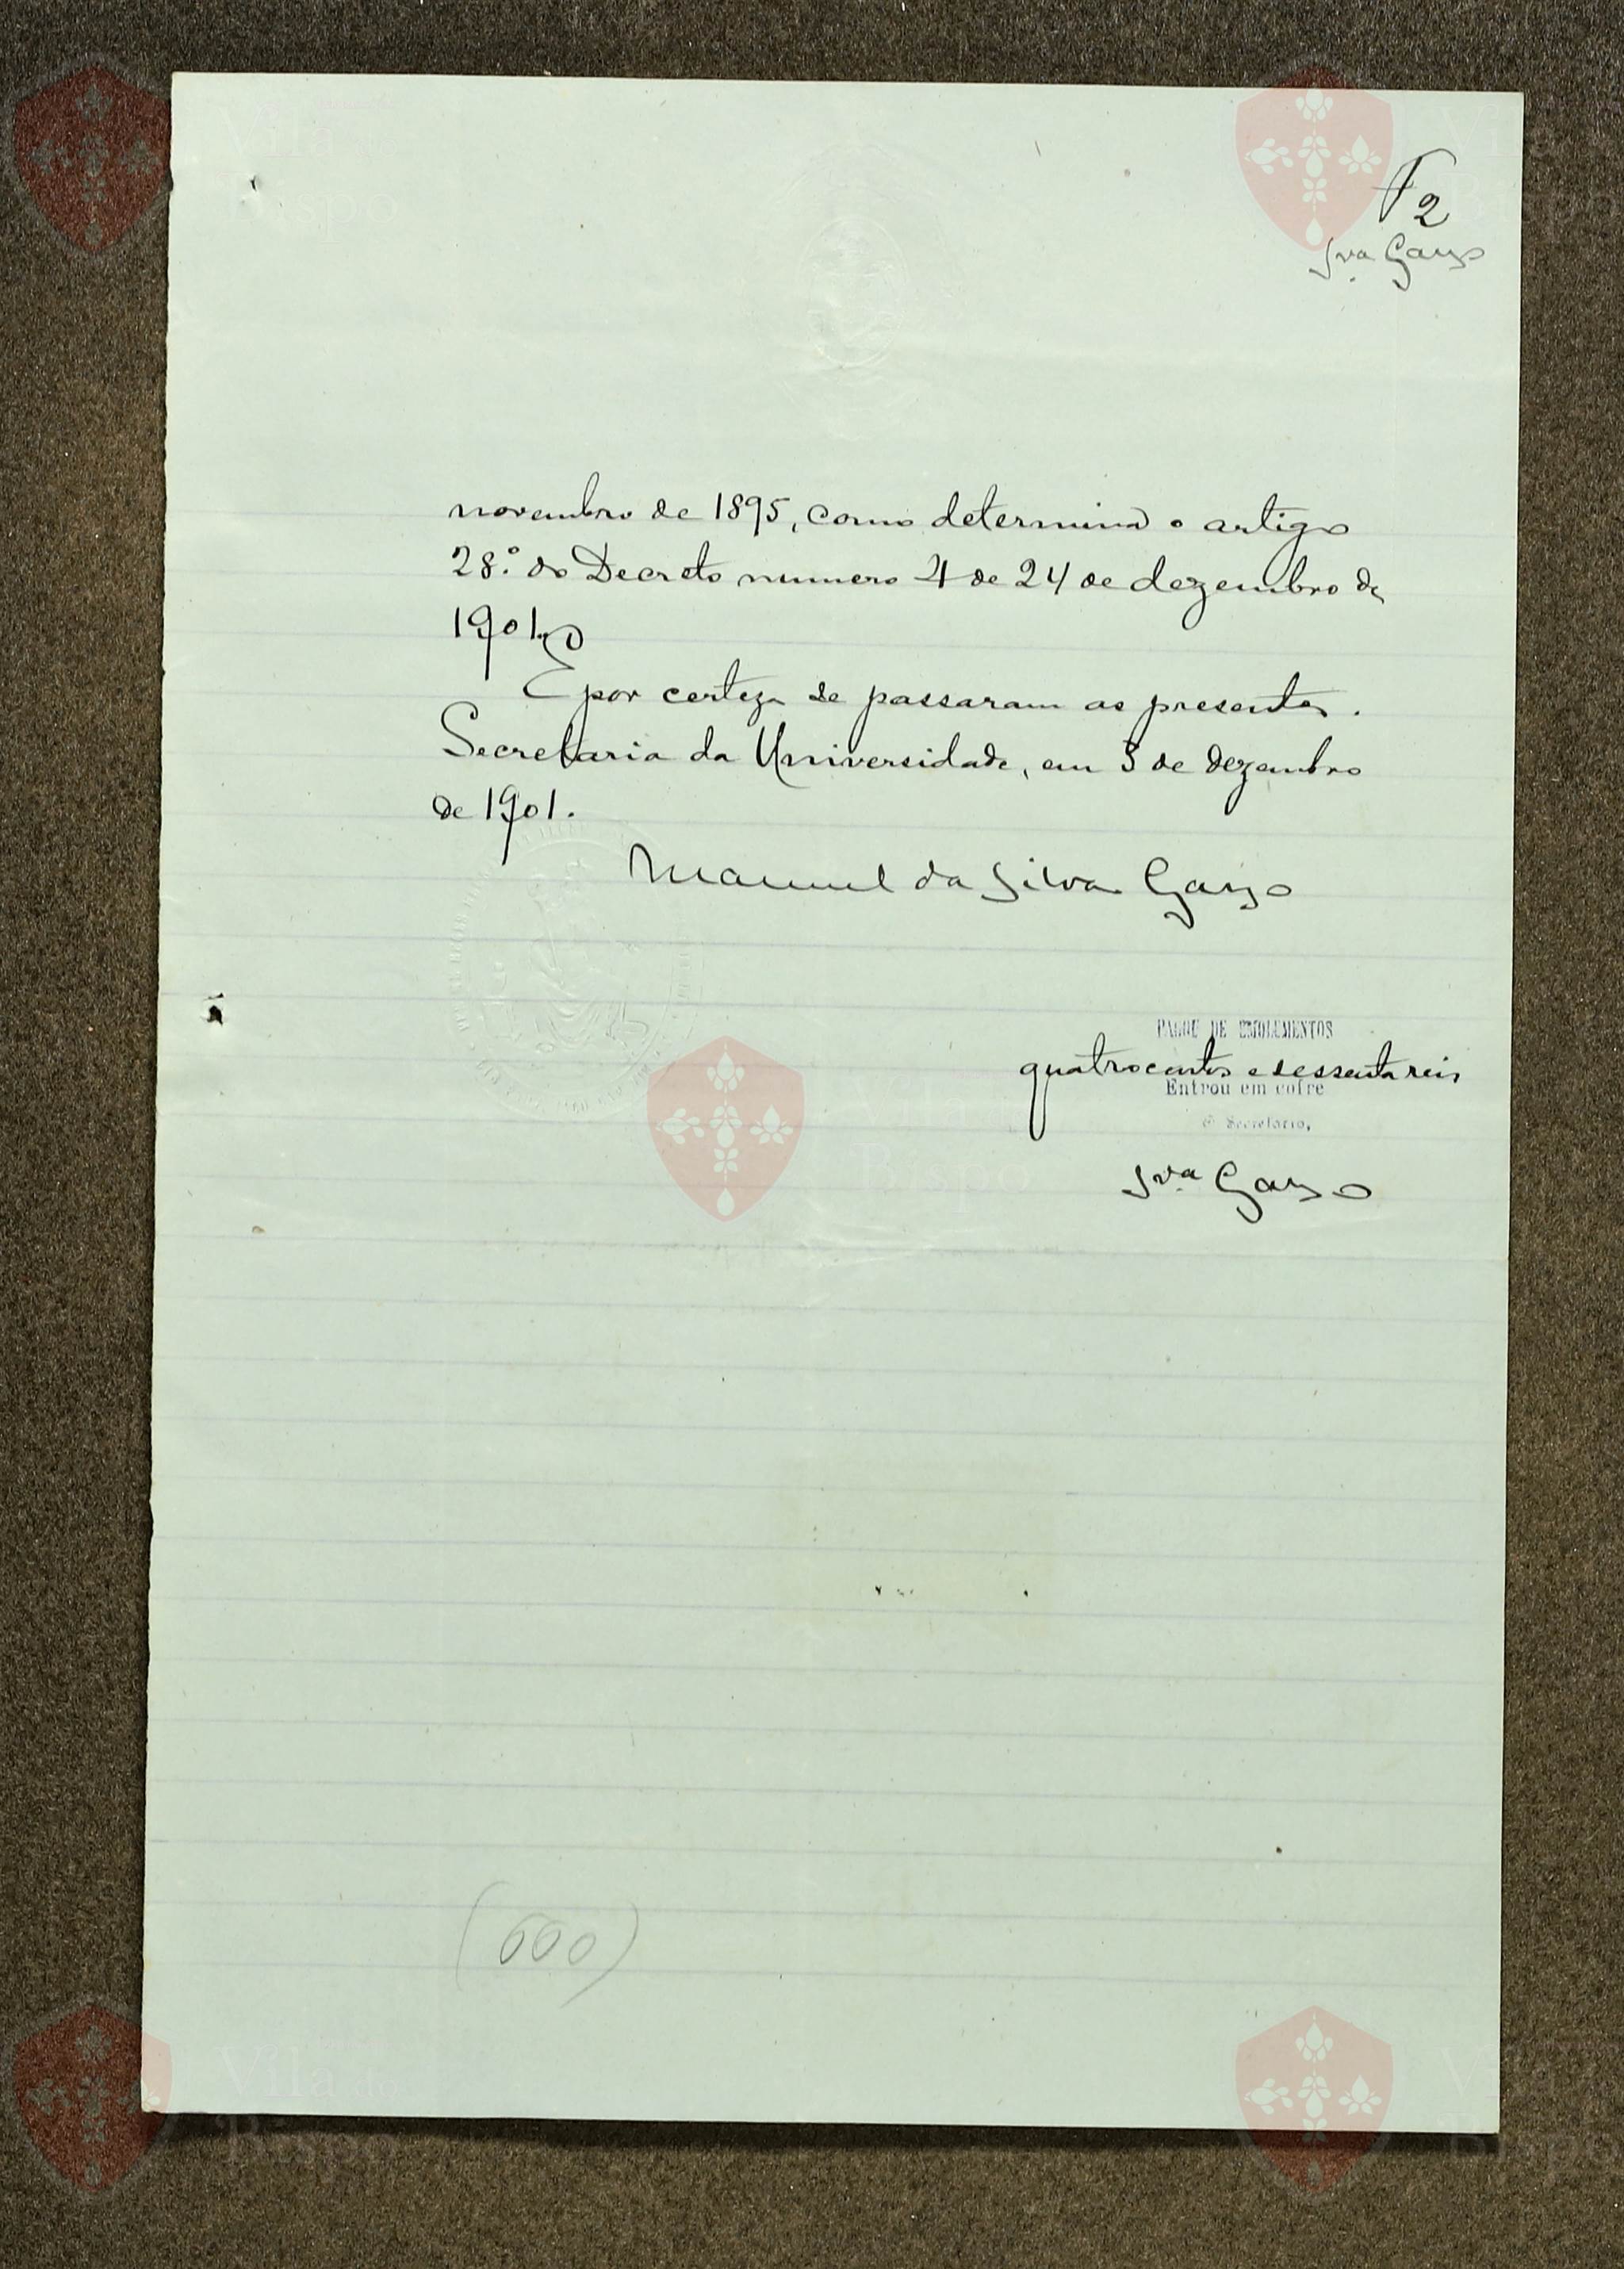 F 2
Sva Gayo
novembro de 1895, como determina o artigo
28.º do Decreto numero 4 de 24 de dezembro de
1901.
E por certeza se passaram as presentes.
Secretaria da Universidade, em 3 de dezembro
de 1901.
Manuel da Silva Gayo
PAGOU DE EMOLUMENTOS
quatrocentos e sessenta reis
Entrou em cofre
O Secretario,
Sva Gayo
(600)
Vila do
Bispo